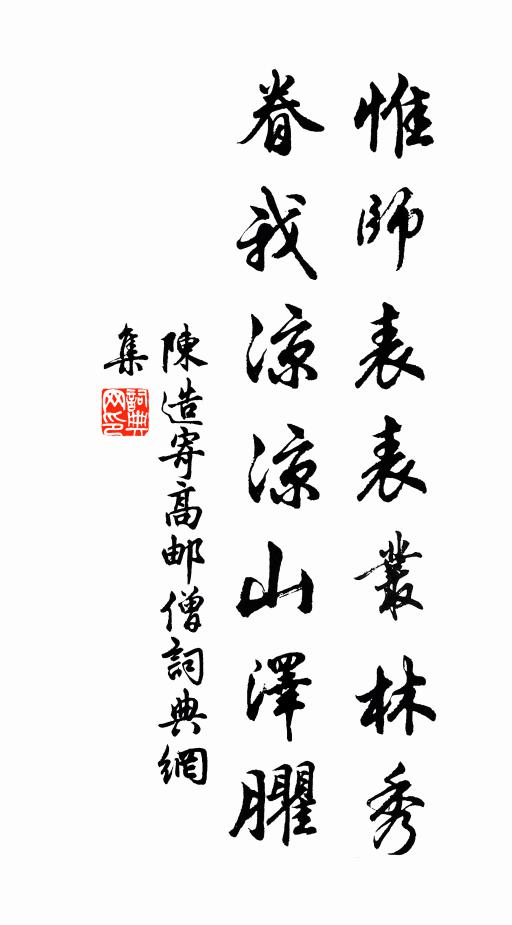 惟師表表叢林秀
眷我涼涼山澤臞
陳造寄高邮僧詞典網
集
詞典
网印